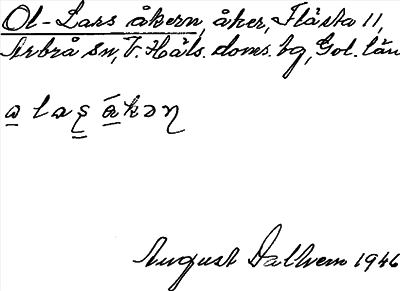 Ol-Lars åkern, åker, Flästa 11,
Arbrå sn, V. Häls. doms. bg, Gol. län
August Dallvem 1946